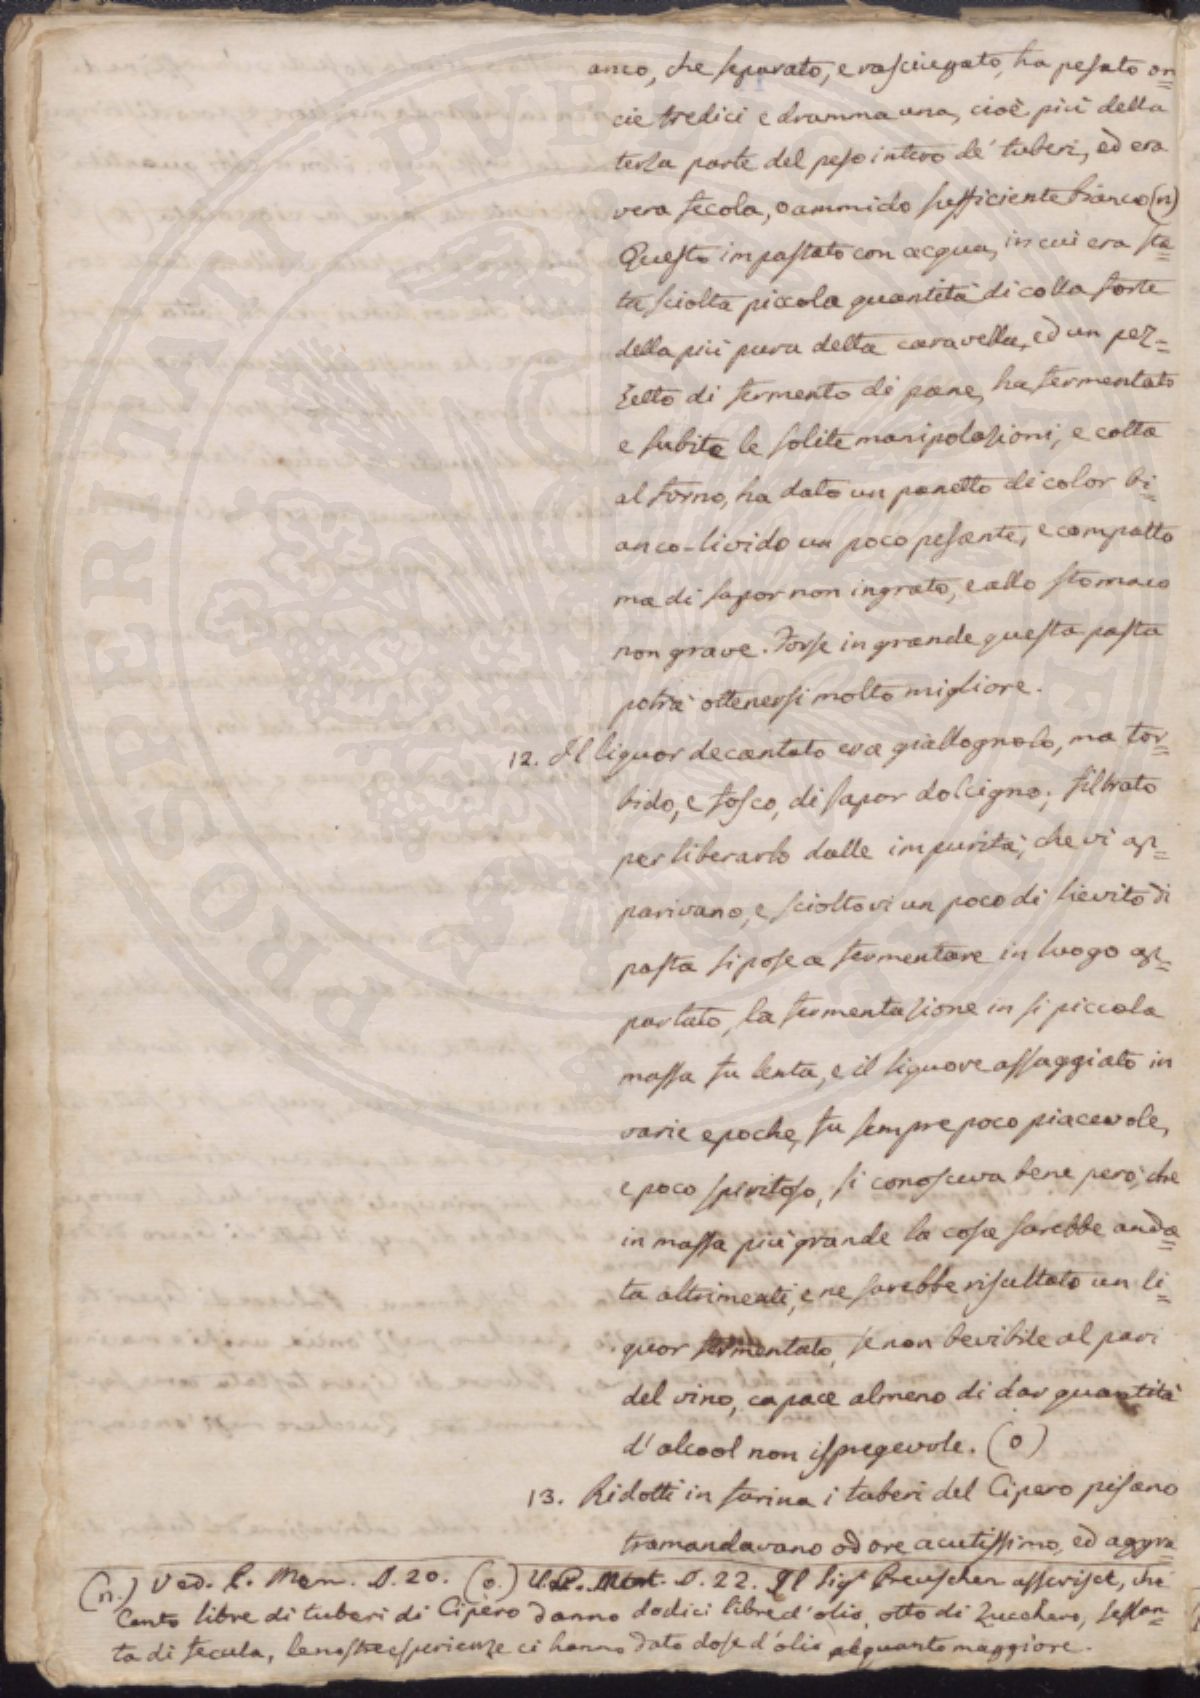 anco, che separato, e rasciugato, ha pesato on=
cie tredici e dramma una, cioè più della
terza parte del peso intero de' tuberi, ed era
vera fecola, o ammido sufficiente bianco (n)
Questo impastato con acqua, in cui era sta=
ta sciolta piccola quantità di colla forte
della più pura detta caravella, ed un pez=
zetto di fermento di pane, ha fermentato
e subite le solite manipolazioni, e cotta
al forno, ha dato un panetto di color bi=
anco-livido un poco pesante, e compatto
ma di sapor non ingrato, e allo stomaco
non grave. Forse in grande questa pasta
potrà ottenersi molto migliore.
12. Il liquor decantato era giallognolo, ma tor=
bido, e fosco, di sapor dolcigno; filtrato
per liberarlo dalle impurità, che vi ap=
parivano, e scioltovi un poco di lievito di
pasta si pose a fermentare in luogo ap=
partato, la fermentazione in si piccola
massa fu lenta, e il liquore assaggiato in
varie epoche, fu sempre poco piacevole,
e poco spiritoso, si conosceva bene però, che
in massa più grande la cosa sarebbe anda=
ta altrimenti, e ne sarebbe risultato un li=
quor fermentato, se non bevibile al pari
del vino, capace almeno di dar quantità
d'alcool non ispregevole. (o)
13. Ridotti in farina i tuberi del Cipero pisano
tramandavano odore acutissimo, ed aggra=
(n.) Ved. l. Mem. §. 20. (o.) Mem. §. 22. Il Sigr. Breuschen asserisce, che
Cento libre di tuberi di Cipero danno dodici libre d'olio, otto di Zucchero, sessan=
ta di fecula, le nostre esperienze ci hanno dato dose d'olio alquanto maggiore.
PROSPERITATI PUBLICAE AUGENDAE